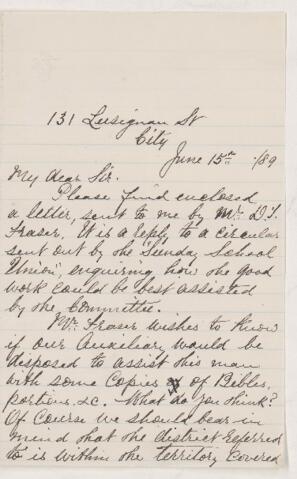 131 Lusignan St
City
June 15th /89
My dear Sir.
Please find enclosed
a letter, sent to me by Mr D.T.
Fraser. It is a reply to a circular
sent out by the "Sunday School
Union", enquiring how the good
work could be best assisted
by the Committee.
Mr. Fraser wishes to know
if our Auxiliary would be
disposed to assist this man
with some Copies of Bibles,
portions, &c. What do you think?
Of Course we should bear in
mind that the district referred
to is within the territory covered